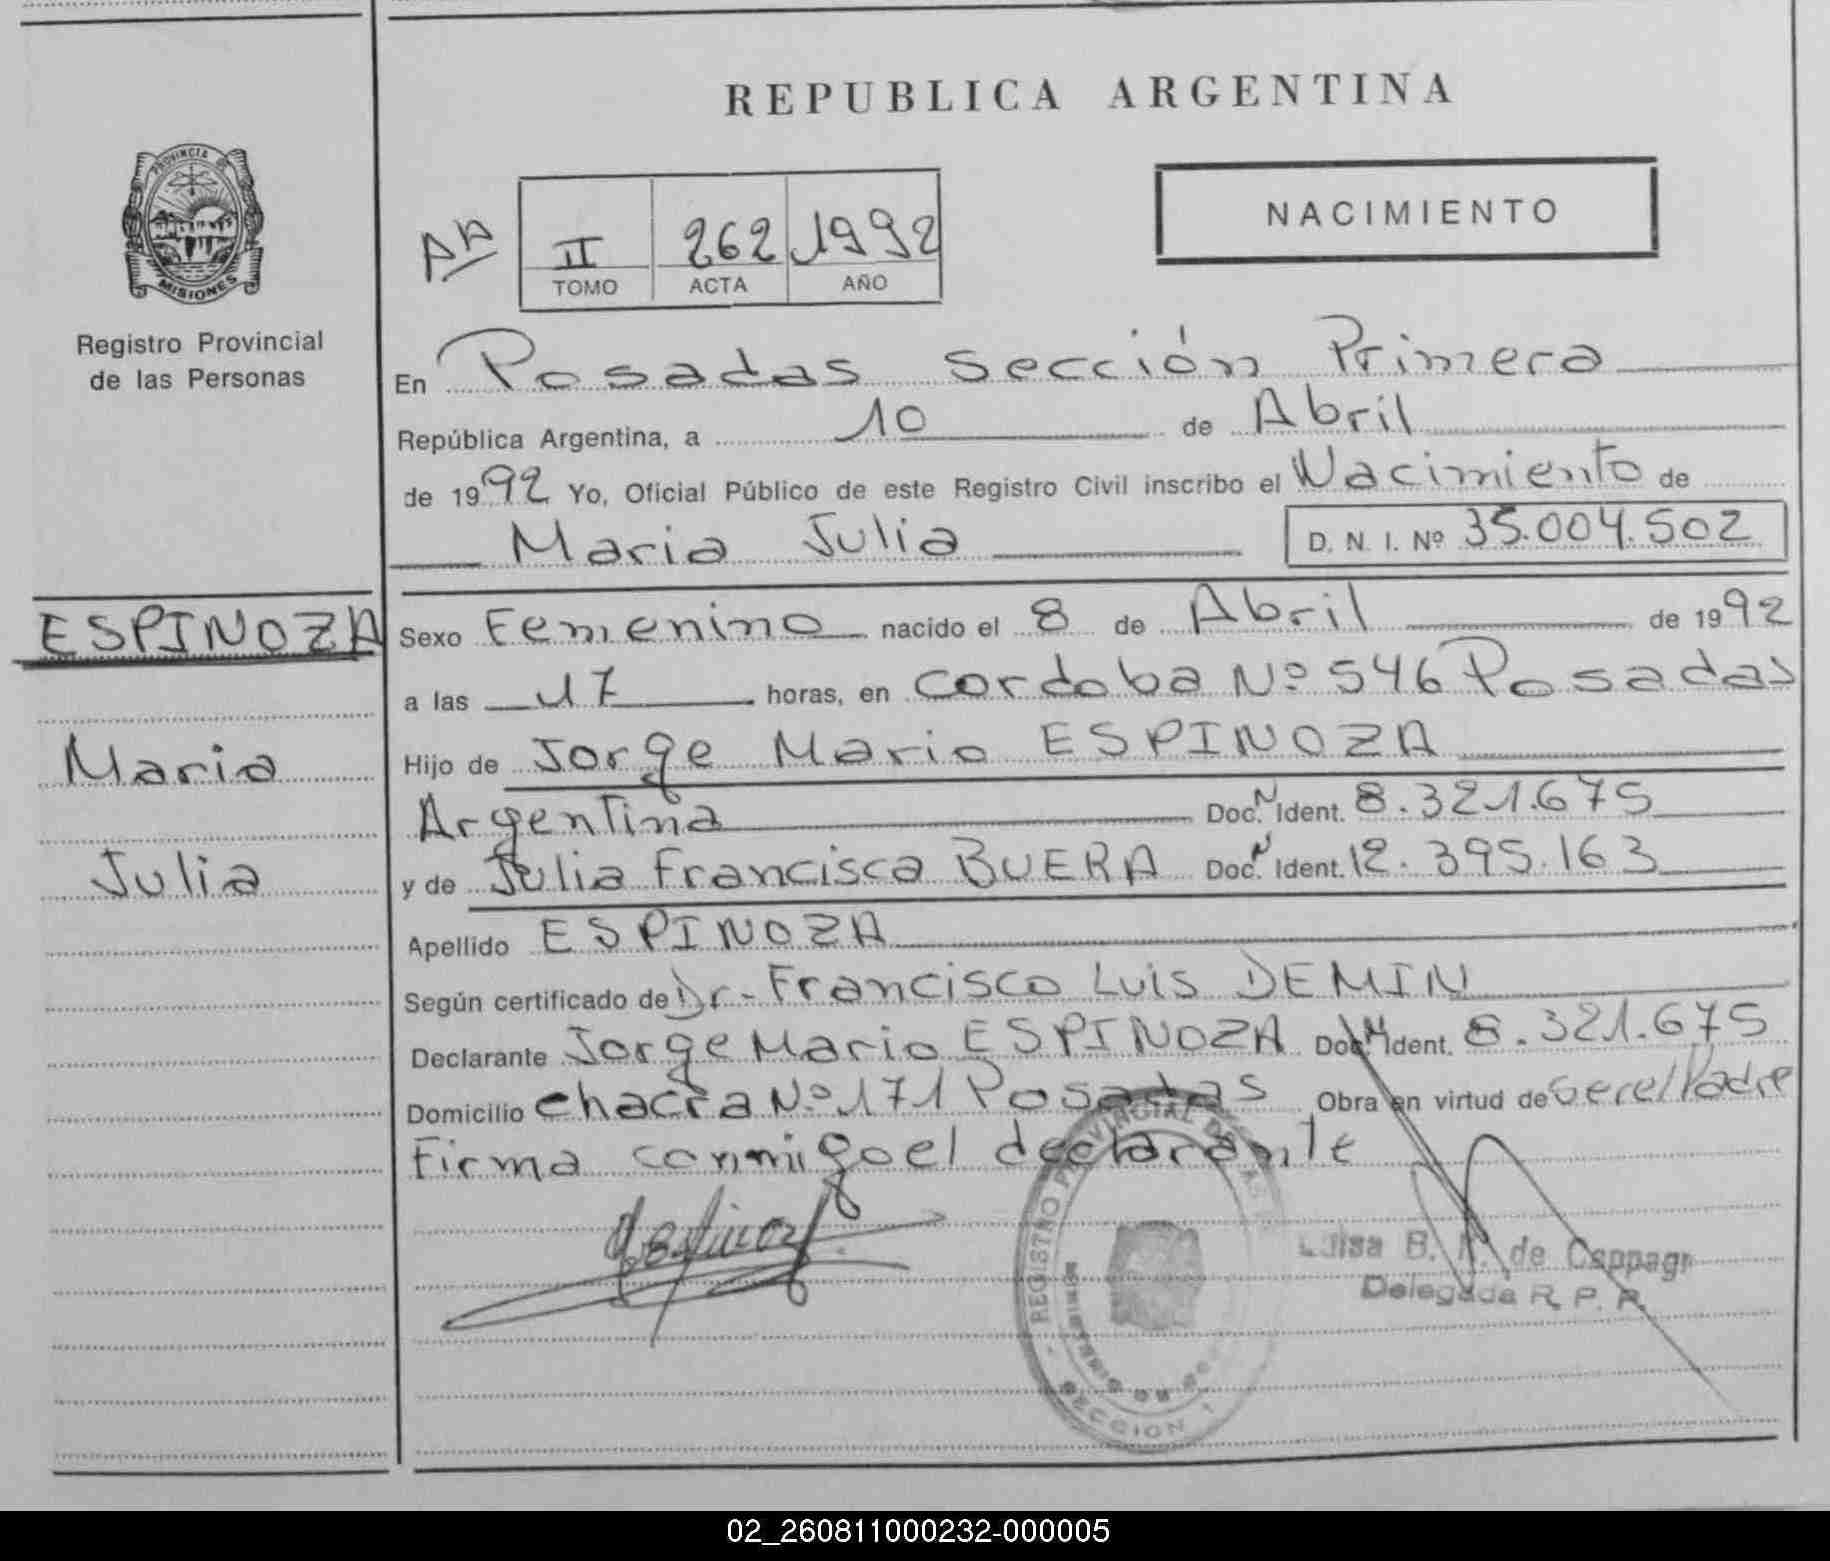 REPUBLICA ARGENTINA
PROVINCIA DE
MISIONES
Registro Provincial
de las Personas
NACIMIENTO
II 262 1992
TOMO ACTA AÑO
En Posadas Sección Primera
República Argentina, a 10 de Abril
de 1992 Yo, Oficial Público de este Registro Civil inscribo el Nacimiento de
Maria Julia D. N. I. Nº 35.004.502
ESPINOZA
Maria
Julia
Sexo Femenino nacido el 8 de Abril de 1992
a las 17 horas, en Cordoba Nº 546 Posadas
Hijo de Jorge Mario ESPINOZA
Argentina Doc. N Ident. 8.321.675
y de Julia Francisca BUERA Doc. N Ident. 12.395.163
Apellido ESPINOZA
Según certificado de Dr- Francisco Luis DEMIN
Declarante Jorge Mario ESPINOZA Doc. N Ident. 8.321.675
Domicilio chacra Nº 171 Posadas Obra en virtud de ser el Padre
Firma conmigo el declarante
REGISTRO PROVINCIAL DE LAS
SECCION 1
Luisa B. de
Delegada R. P. P.
02_260811000232-000005